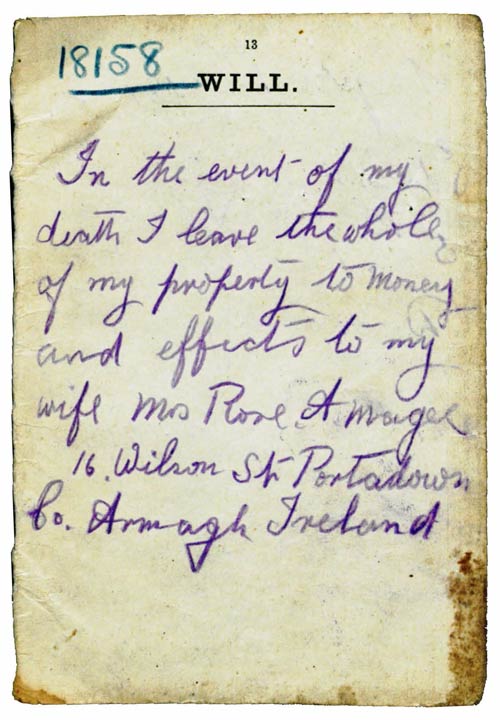 13
18158
WILL.
In the event of my
death I leave the whole
of my property to money
and effects to my
wife Mrs Rose. A magee
16. Wilson St. Portadown
Co. Armagh Ireland